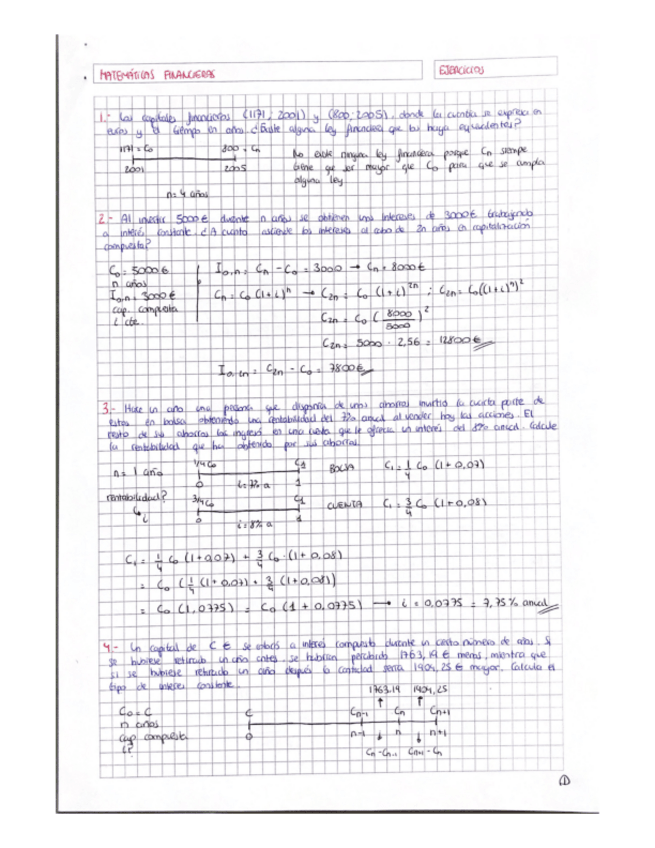 MATEMÁTICAS FINANCIERAS
EJERCICIOS
1.- Los capitales financieros (1171, 2001) y (800, 2005), donde la cuantía se expresa en
euros y el tiempo en años. ¿Existe alguna ley financiera que los haga equivalentes?
1171 = C₀ 800 = Cn
2001 2005
n = 4 años
No existe ninguna ley financiera porque Cn siempre
tiene que ser mayor que C₀ para que se cumpla
alguna ley
2.- Al invertir 5000 € durante n años se obtienen unos intereses de 3000 € trabajando
a interés constante. ¿A cuánto asciende los intereses al cabo de 2n años en capitalización
compuesta?
C₀ = 5000 €
n años
I₀,n = 3000 €
cap. compuesta
i cte.
I₀,n = Cn - C₀ = 3000 → Cn = 8000 €
Cn = C₀ (1+i)ⁿ → C₂n = C₀ (1+i)²ⁿ ; C₂n = C₀((1+i)ⁿ)²
C₂n = C₀ (8000/5000)²
C₂n = 5000 · 2,56 = 12800 €
I₀,₂n = C₂n - C₀ = 7800 €
3.- Hace un año una persona que disponía de unos ahorros invirtió la cuarta parte de
estos en bolsa obteniendo una rentabilidad del 7% anual al vender hoy las acciones. El
resto de sus ahorros los ingresó en una cuenta que le ofrecía un interés del 8% anual. Calcule
la rentabilidad que ha obtenido por sus ahorros.
n = 1 año
rentabilidad?
i
1/4 C₀ C₁
0 i = 7% a 1
BOLSA C₁ = 1/4 C₀ (1 + 0,07)
3/4 C₀ C₁
0 i = 8% a 1
CUENTA C₁ = 3/4 C₀ (1 + 0,08)
C₁ = 1/4 C₀ (1+0,07) + 3/4 C₀ · (1 + 0,08)
= C₀ (1/4 (1+0,07) + 3/4 (1+0,08))
= C₀ (1,0775) = C₀ (1 + 0,0775) → i = 0,0775 = 7,75% anual
4.- Un capital de C € se colocó a interés compuesto durante un cierto número de años. Si
se hubiese retirado un año antes se hubieran percibido 1763,19 € menos, mientras que
si se hubiese retirado un año después la cantidad sería 1904,25 € mayor. Calcula el
tipo de interés constante.
C₀ = C
n años
cap. compuesta
i?
1763,19 1904,25
C Cn-1 Cn Cn+1
0 n-1 n n+1
Cn - Cn-1 Cn+1 - Cn
1